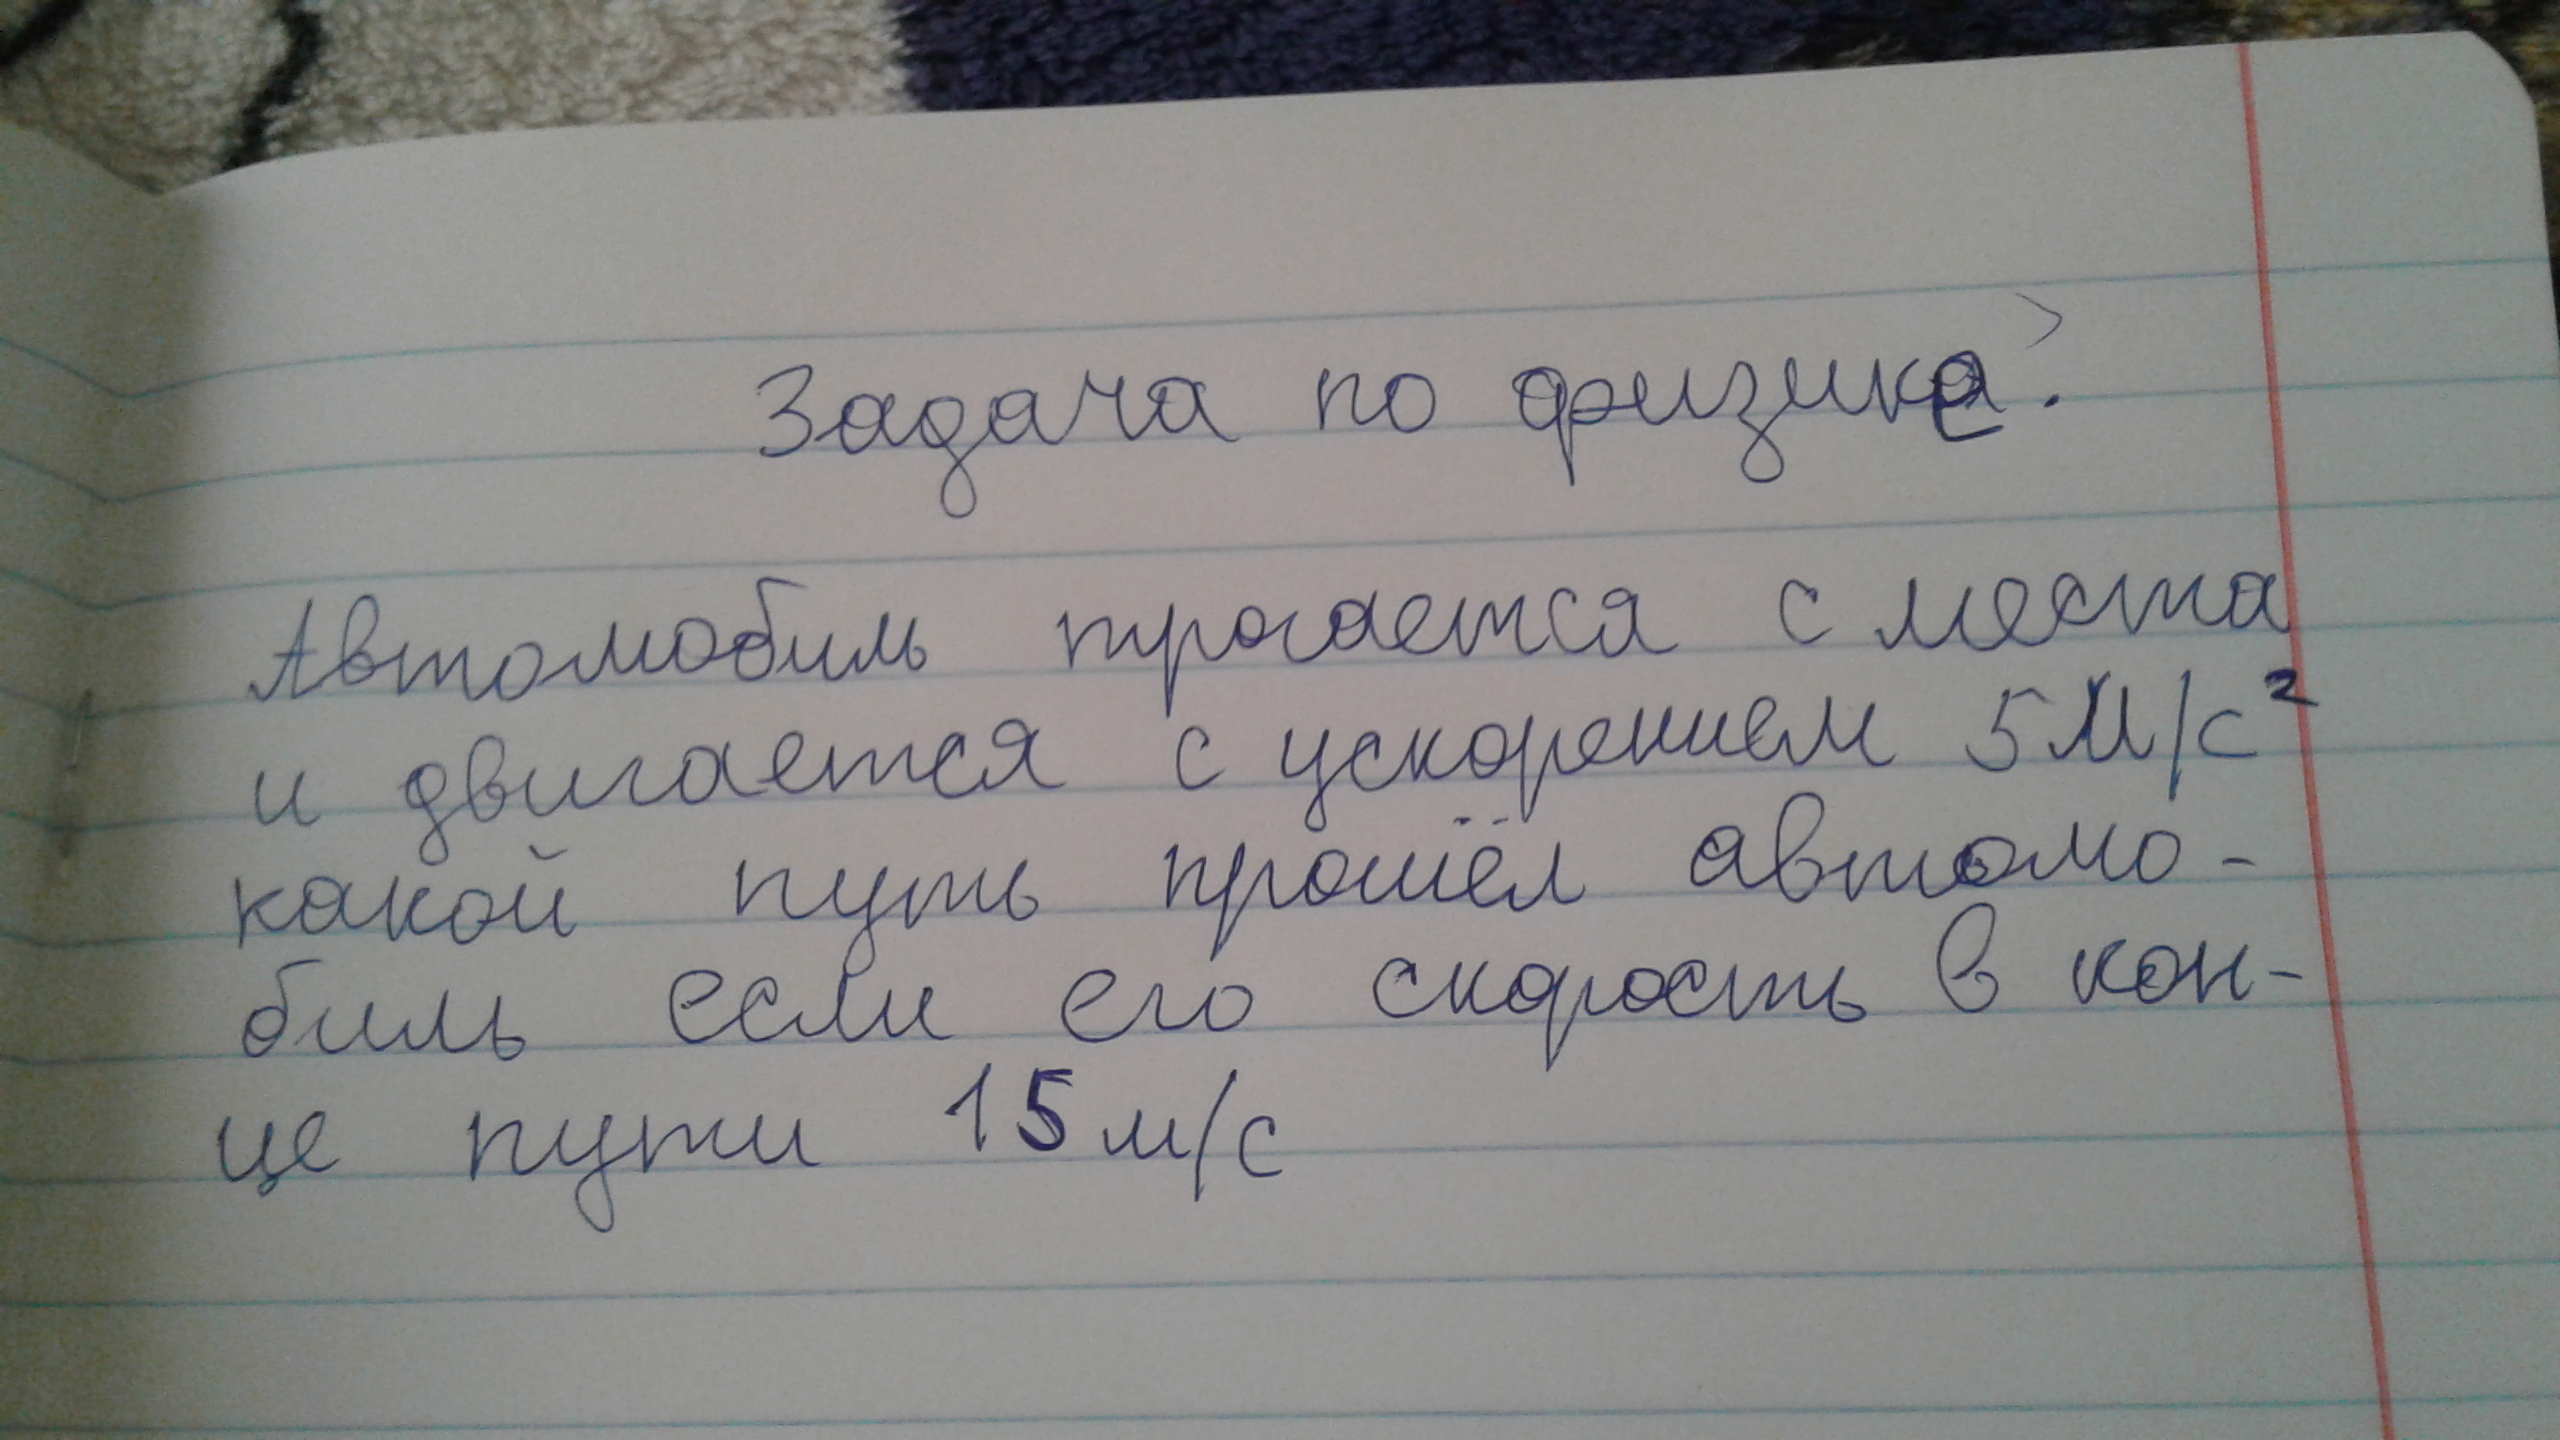 Задача по физике.
Автомобиль трогается с места
и двигается с ускорением 5 м/с²
какой путь прошёл автомо-
биль если его скорость в кон-
це пути 15 м/с